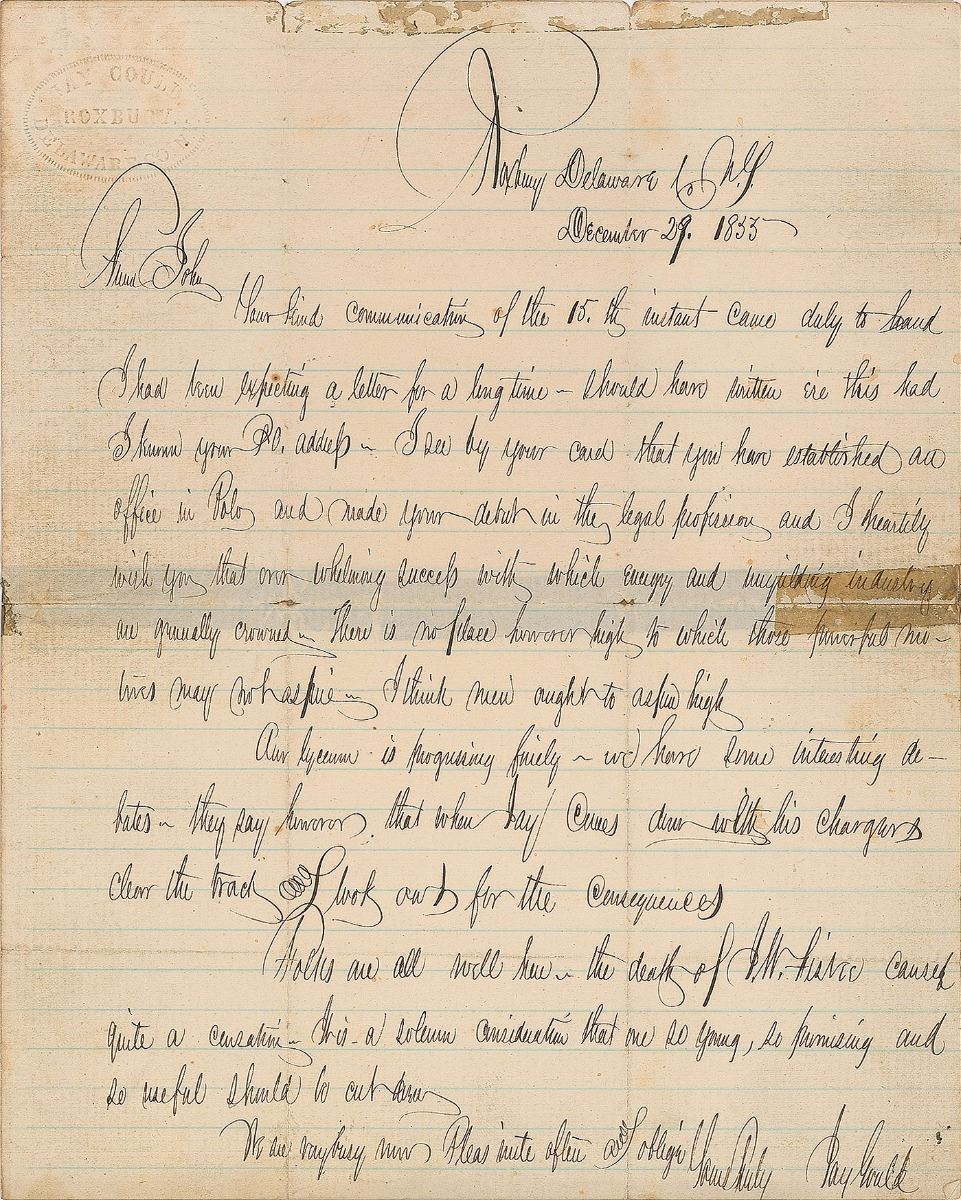 JAY GOULD
ROXBURY
DELAWARE CO. N.Y.
Roxbury Delaware Co N.Y.
December 29. 1855
Friend John
Your kind communication of the 15.th instant came duly to hand
I had been expecting a letter for a long time – should have written ere this had
I known your P.O. address – I see by your card that you have established an
office in Polo and made your debut in the legal profession and I heartily
wish you that over whelming success with which energy and unyielding industry
are generally crowned – There is no place however high to which those powerful mo–
tives may not aspire – I think men ought to aspire high
Our lyceum is progressing finely – we have some interesting de–
bates – they say however that when Jay comes down with his chargers
clear the track and look out for the consequences
Folks are all well here – the death of J.W. caused
quite a censation – This a solemn consideration that one so young, so promising and
so useful should be cut down
We are very busy now Pleas write often and oblige Yours Truly Jay Gould